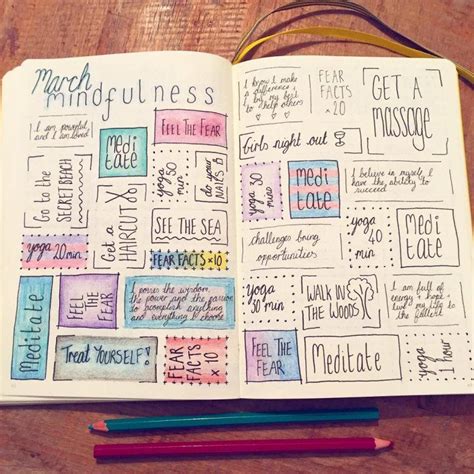 March
mindfulness
I am powerful
and I am loved
Medi
tate
FEEL THE FEAR
Go to the
SECRET BEACH
yoga 50
min
do your
NAILS
Get a
HAIRCUT
SEE THE SEA
yoga 20 min
FEAR FACTS x10
Meditate
FEEL
THE
FEAR
I posses the wisdom,
the power and the passion
to accomplish anything
and everything I choose
Treat YOURSELF!
FEAR
FACTS
x 10
I know I make
a difference
try my best to
help others
FEAR
FACTS
x20
GET A
MASSAGE
Girls night out
yoga 30
min
MEDI
TATE
I believe in myself, I
have the ability to
succeed
challenges bring
opportunities
yoga
40
min
Medi
tate
yoga
50 min
WALK IN
THE
WOODS
I am full of
energy + hope
live my life to
the fullest
FEEL THE
FEAR
Meditate
yoga
1 hour